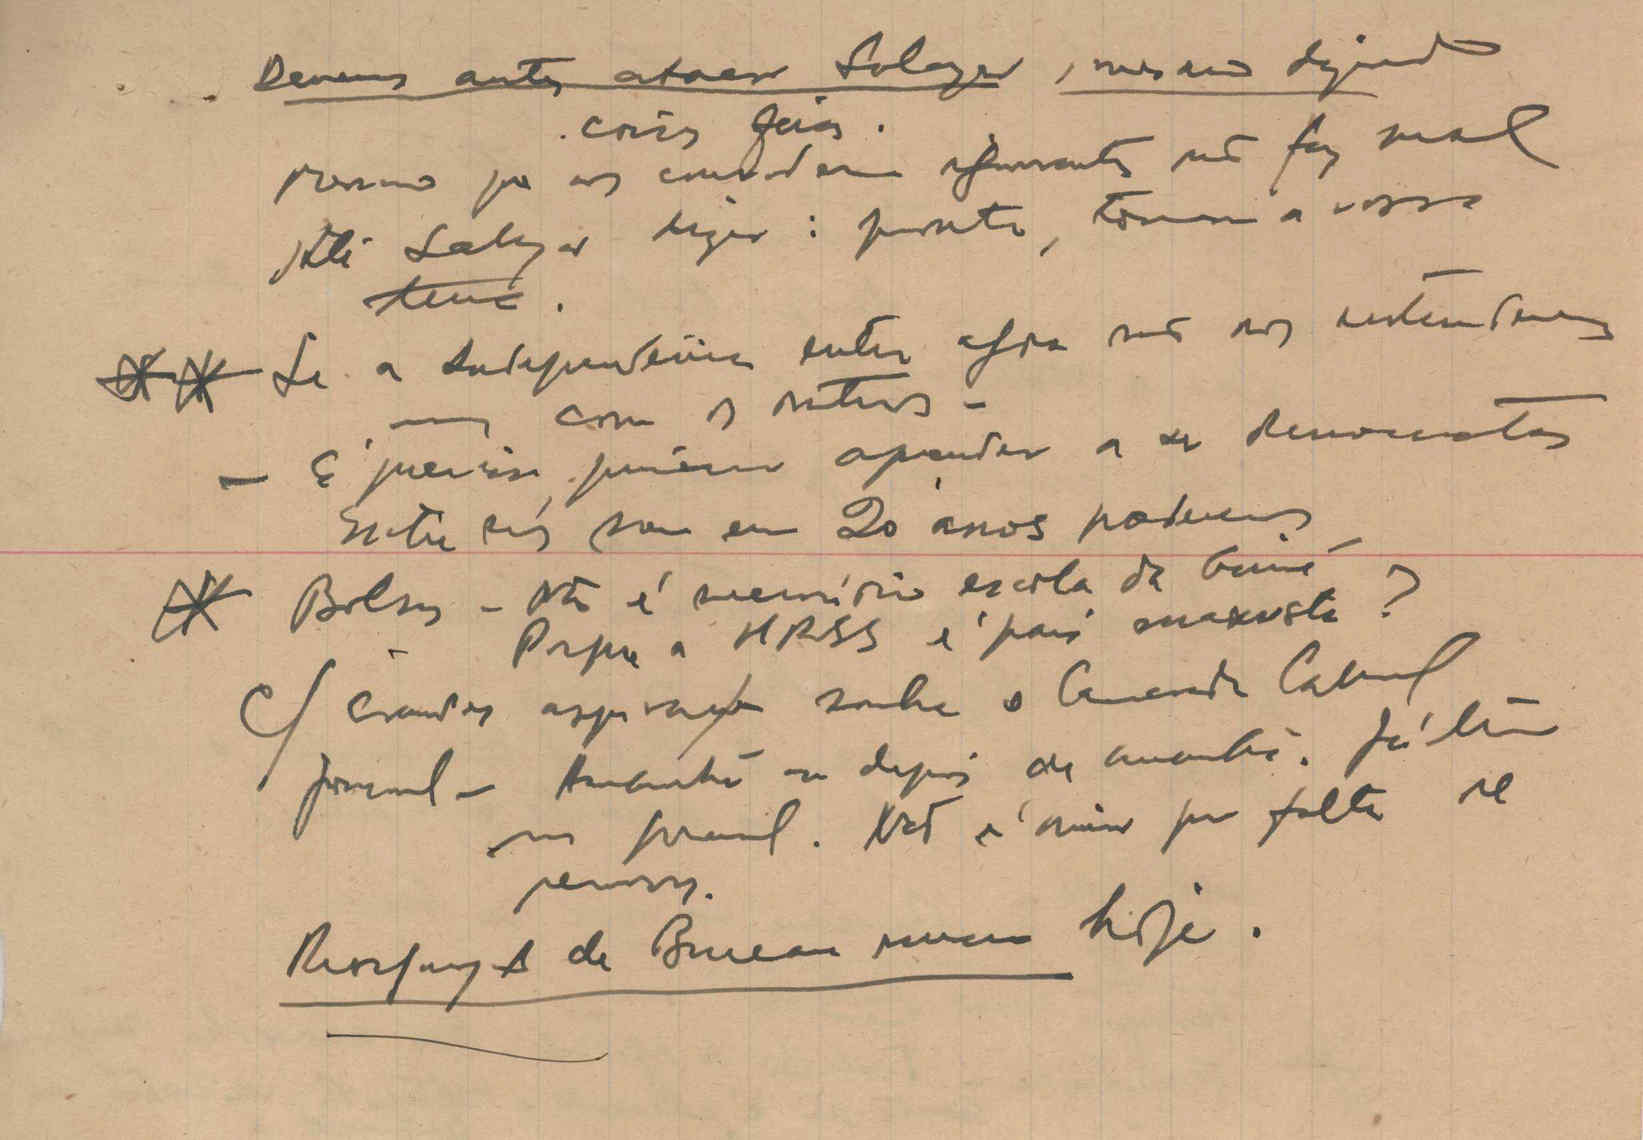 Devemos antes atacar Salazar, mesmo dizendo
coisas feias.
Mesmo que nos considerem ignorantes não faz mal
Até Salazar dizer: pronto, tomem a vossa
terra.
Se a Independência entra agora não nos entendemos
com os outros -
- É preciso primeiro aprender a ser democratas
Entre nós em 20 anos podemos
Bolsas - Não é necessário escola da Guiné
Porque a URSS é país marxista?
C/ grandes aspiração sonha o Camarada Cabral
Jornal - Amanhã ou depois de amanhã. Já têm
um jornal. Não é por falta de
pessoas.
Reorganização de Bureau hoje.